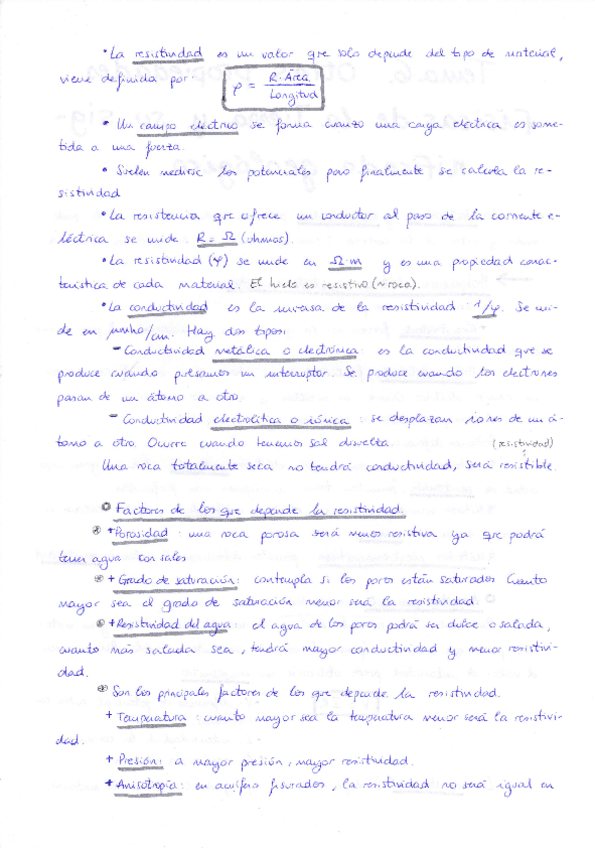 • La resistividad es un valor que solo depende del tipo de material,
viene definida por φ = R·Área / Longitud
• Un campo eléctrico se forma cuando una carga eléctrica es some-
tida a una fuerza.
• Suelen medirse los potenciales pero finalmente se calcula la re-
sistividad
• La resistencia que ofrece un conductor al paso de la corriente e-
léctrica se mide R = Ω (ohmnos).
• La resistividad (φ) se mide en Ω·m y es una propiedad carac-
terística de cada material. El hielo es resistivo (~roca).
• La conductividad es la inversa de la resistividad 1/φ. Se mi-
de en mmho/cm. Hay dos tipos:
- Conductividad metálica o electrónica: es la conductividad que se
produce cuando pulsamos un interruptor. Se produce cuando los electrones
pasan de un átomo a otro
- Conductividad electrolítica o iónica: se desplazan iones de un á-
tomo a otro. Ocurre cuando tenemos sal disuelta.
(resistividad)
Una roca totalmente seca no tendrá conductividad, será resistible.
Factores de los que depende la resistividad.
+ Porosidad: una roca porosa será menos resistiva ya que podrá
tener agua con sales
+ Grado de saturación: contempla si los poros están saturados. Cuanto
mayor sea el grado de saturación menor será la resistividad.
+ Resistividad del agua: el agua de los poros podrá ser dulce o salada,
cuanto más salada sea, tendrá mayor conductividad y menor resistivi-
dad.
Son los principales factores de los que depende la resistividad.
+ Temperatura: cuanto mayor sea la temperatura menor será la resistivi-
dad.
+ Presión: a mayor presión, mayor resistividad.
+ Anisotropía: en acuífero fisurados, la resistividad no será igual en